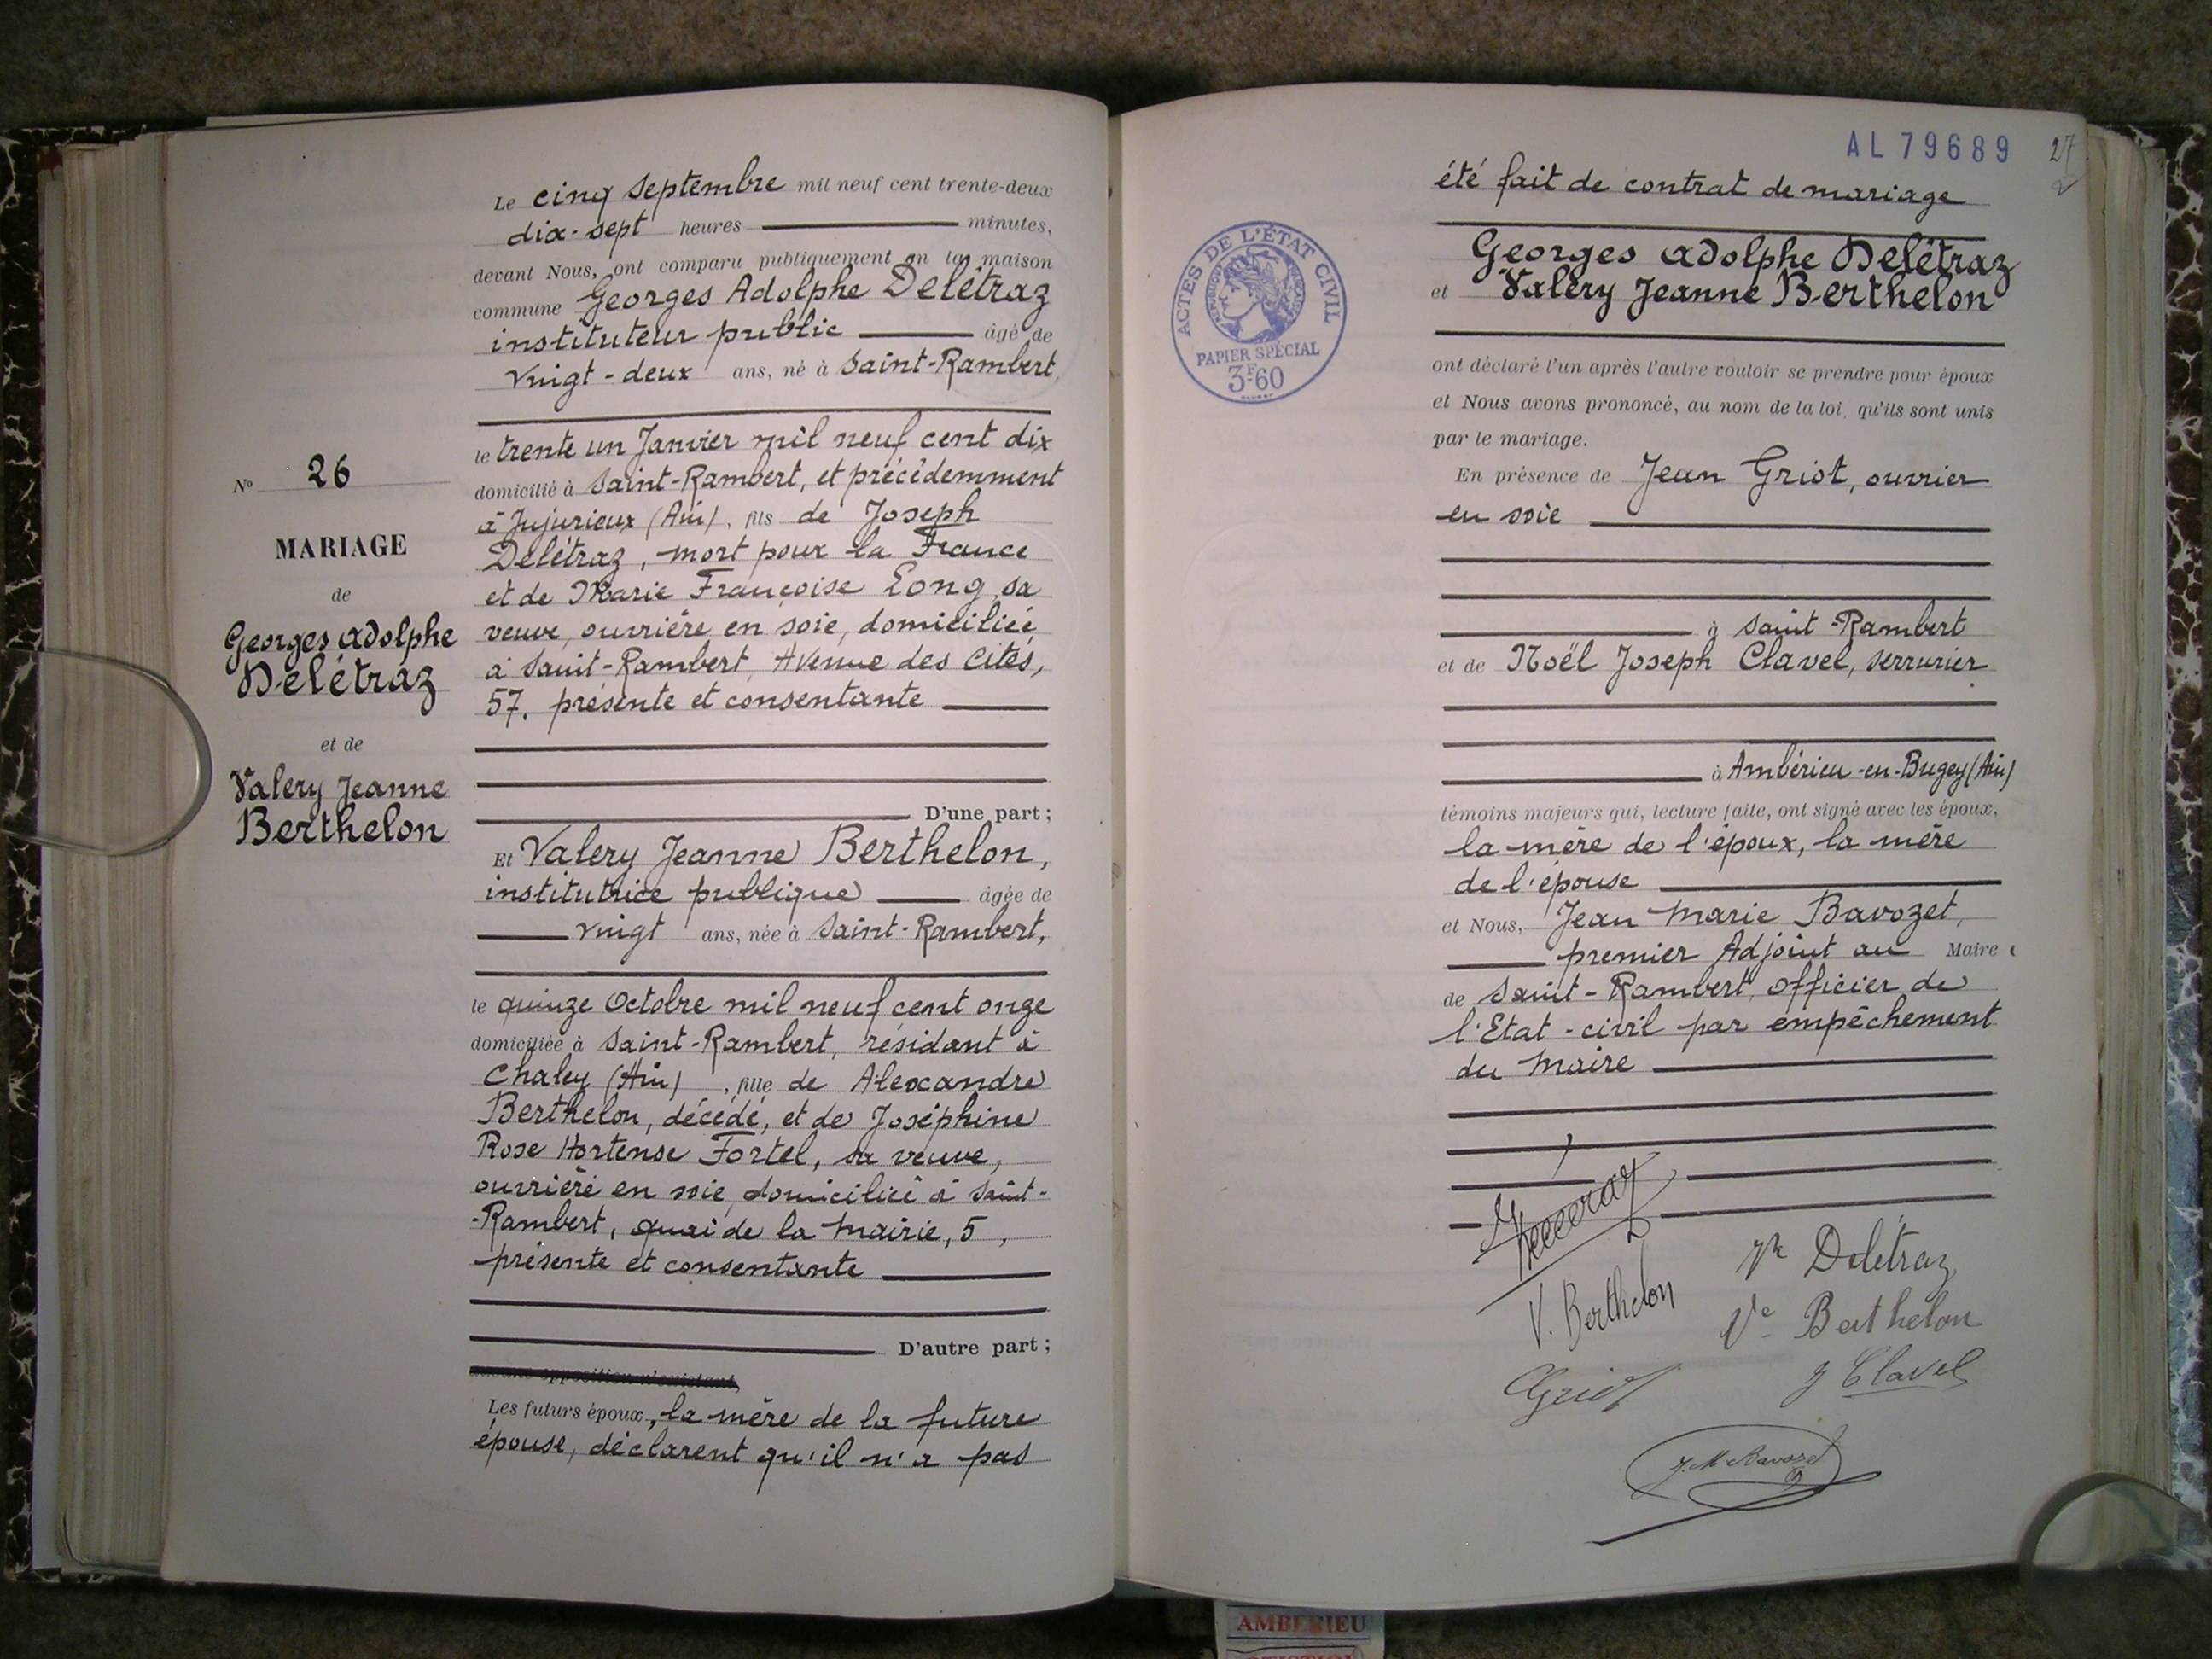 Nº 26
MARIAGE
de
Georges Adolphe
Delétraz
et de
Valery Jeanne
Berthelon
Le cinq Septembre mil neuf cent trente-deux
dix-sept heures minutes,
devant Nous, ont comparu publiquement en la maison
commune Georges Adolphe Delétraz
instituteur public âgé de
vingt-deux ans, né à Saint-Rambert
le trente un Janvier mil neuf cent dix
domicilié à Saint-Rambert, et précédemment
à Jujurieux (Ain), fils de Joseph
Delétraz, mort pour la France
et de Marie Françoise Long, sa
veuve, ouvrière en soie, domiciliée
à Saint-Rambert, Avenue des Cités,
57. présente et consentante
D'une part;
Et Valery Jeanne Berthelon,
institutrice publique âgée de
vingt ans, née à Saint-Rambert,
le quinze Octobre mil neuf cent onze
domiciliée à Saint-Rambert, résidant à
Chaley (Ain), fille de Alexandre
Berthelon, décédé, et de Joséphine
Rose Hortense Fortel, sa veuve,
ouvrière en soie, domiciliée à Saint-
-Rambert, quai de la Mairie, 5,
présente et consentante
D'autre part;
Les futurs époux, la mère de la future
épouse, déclarent qu'il n'a pas
AL 79689
27
été fait de contrat de mariage
ACTES DE L'ÉTAT CIVIL
PAPIER SPÉCIAL
3F60
Georges Adolphe Delétraz
et Valéry Jeanne Berthelon
ont déclaré l'un après l'autre vouloir se prendre pour époux
et Nous avons prononcé, au nom de la loi, qu'ils sont unis
par le mariage.
En présence de Jean Griot, ouvrier
en soie
à Saint-Rambert
et de Noël Joseph Clavel, serrurier
à Ambérieu-en-Bugey (Ain)
témoins majeurs qui, lecture faite, ont signé avec les époux,
la mère de l'époux, la mère
de l'épouse
et Nous, Jean Marie Bavozet,
premier Adjoint au Maire
de Saint-Rambert, officier de
l'Etat-civil par empêchement
du Maire
Ve Delétraz
V. Berthelon
Ve Berthelon
Griot
J Clavel
J. M Bavozet
AMBERIEU